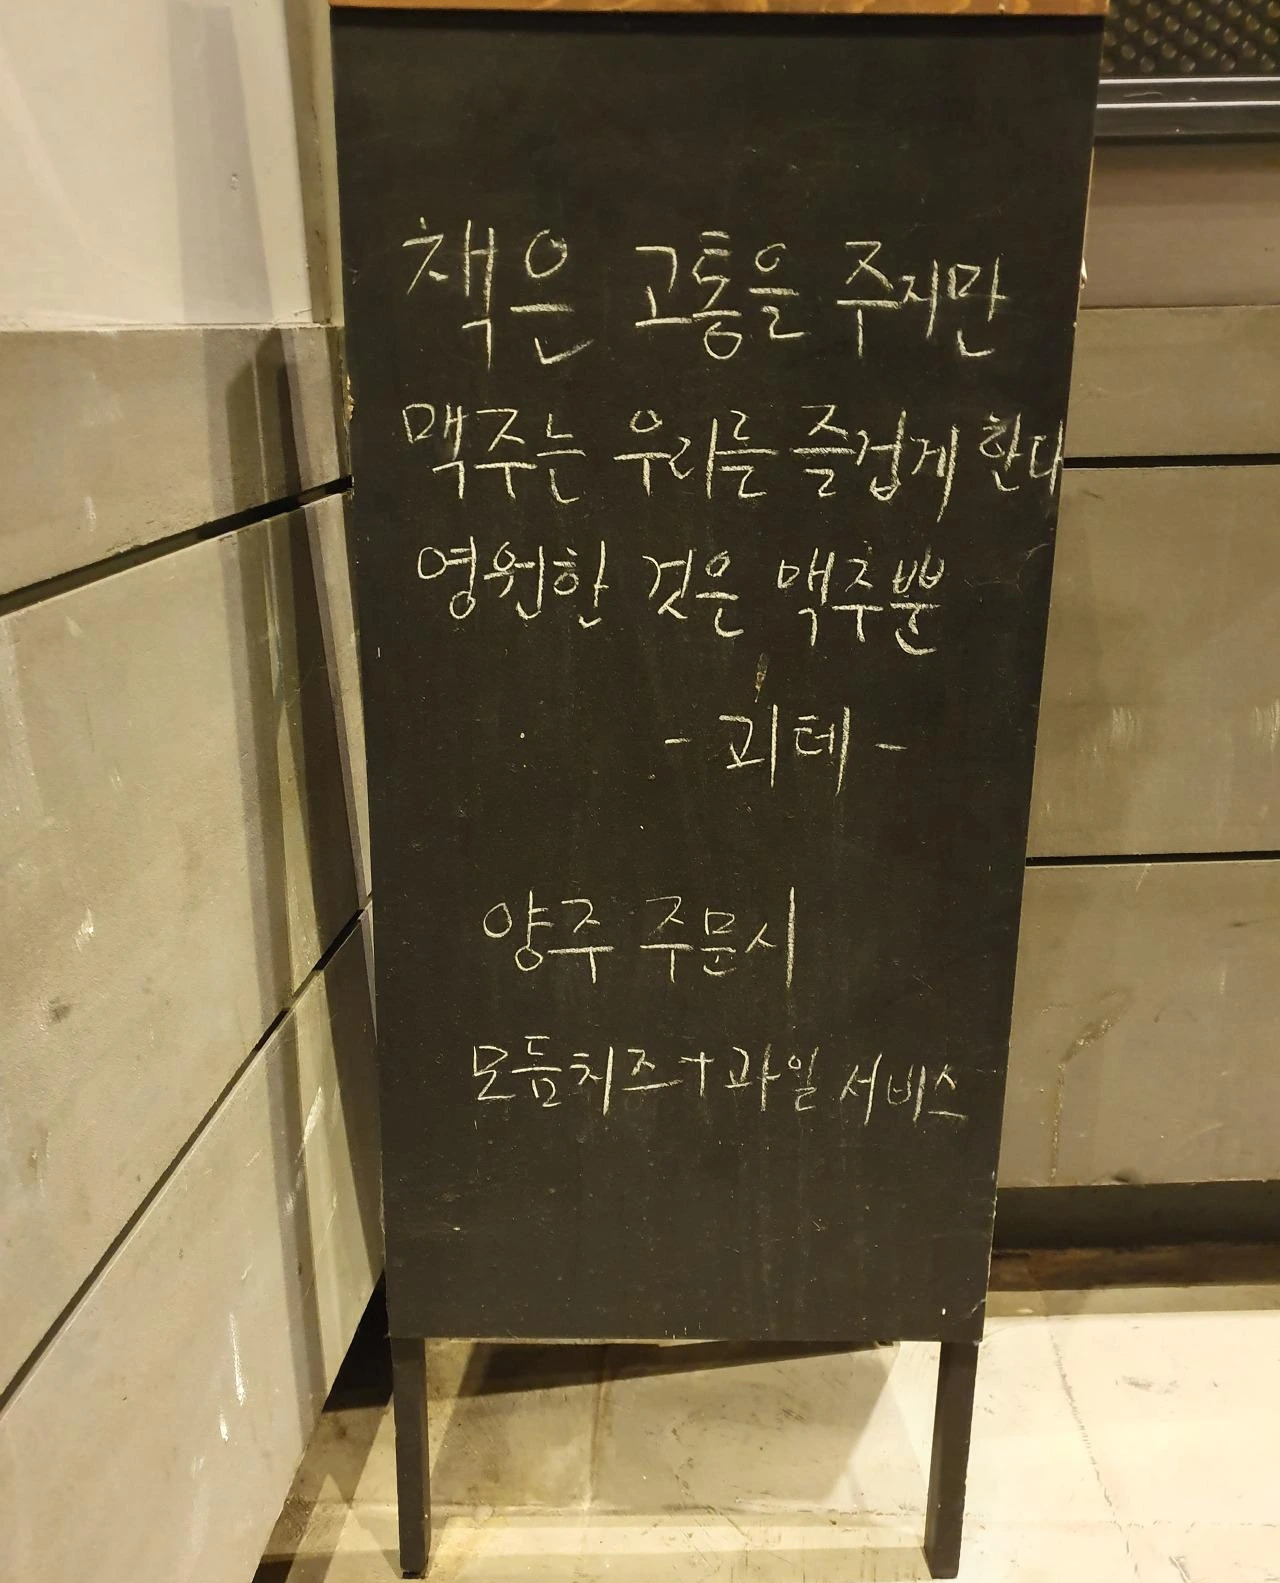 책은 고통을 주지만
맥주는 우리를 즐겁게 한다
영원한 것은 맥주뿐
- 괴테 -
양주 주문시
모듬치즈+과일 서비스